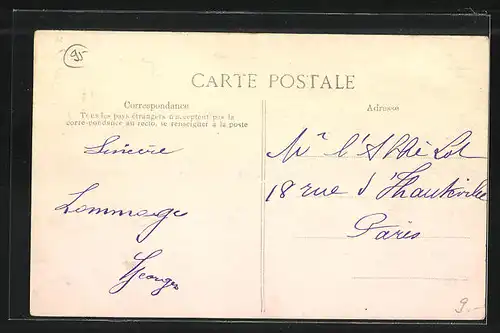 95
CARTE POSTALE
Correspondance
Tous les pays étrangers n'acceptent pas la
corre-pondance au recto, se renseigner a la poste
Adresse
Sincère
hommage
Georges
Mr l'Abbé Lol
18 rue d'Hauteville
Paris
9.-